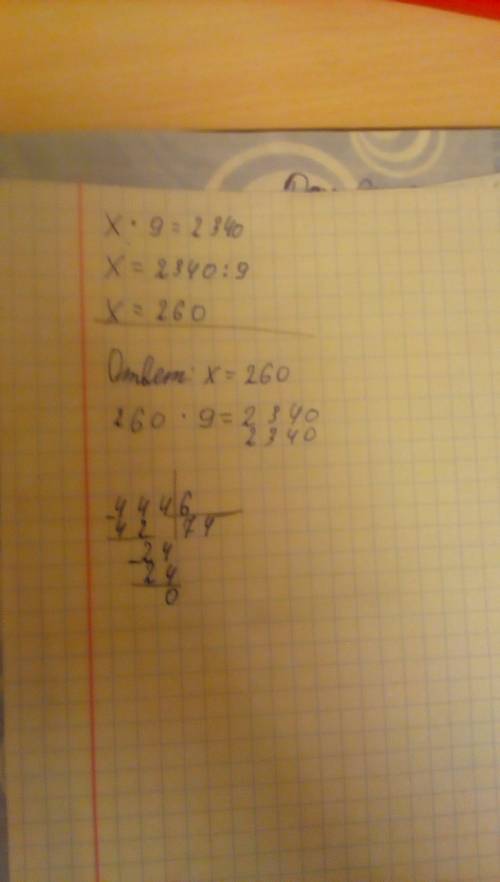 x · 9 = 2340
x = 2340 : 9
x = 260
Ответ: x = 260
260 · 9 = 2340
2340
- 444 | 6
42 | 74
- 24
24
0